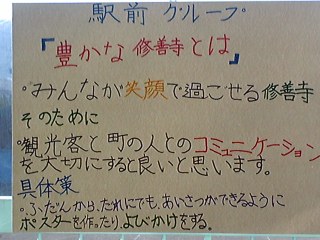 駅前グループ
『豊かな修善寺とは』
・みんなが笑顔で過ごせる修善寺
そのために
・観光客と町の人とのコミュニケーション
を大切にすると良いと思います。
具体策
・ふだんから、だれにでも、あいさつができるように
ポスターを作ったり、よびかけをする。